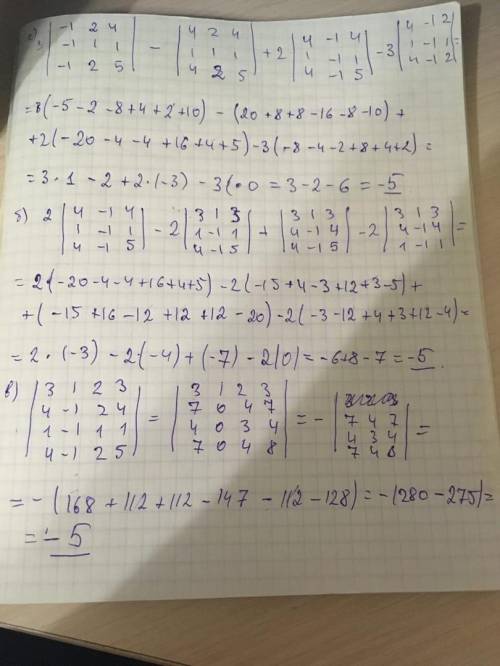 а) 3 | -1 2 4 | - | 4 2 4 | + 2 | 4 -1 4 | - 3 | 4 -1 2 | =
| -1 1 1 | | 1 1 1 | | 1 -1 1 | | 1 -1 1 |
| -1 2 5 | | 4 2 5 | | 4 -1 5 | | 4 -1 2 |
= 3(-5-2-8+4+2+10) - (20+8+8-16-8-10) +
+2(-20-4-4+16+4+5) -3(-8-4-2+8+4+2) =
= 3·1 - 2 + 2·(-3) - 3·0 = 3-2-6 = -5
б) 2 | 4 -1 4 | - 2 | 3 1 3 | + | 3 1 3 | - 2 | 3 1 3 | =
| 1 -1 1 | | 1 -1 1 | | 4 -1 4 | | 4 -1 4 |
| 4 -1 5 | | 4 -1 5 | | 4 -1 5 | | 1 -1 1 |
= 2(-20-4-4+16+4+5) -2(-15+4-3+12+3-5)+
+(-15+16-12+12+12-20) -2(-3-12+4+3+12-4)=
= 2·(-3) - 2·(-4) + (-7) - 2|0| = -6+8-7 = -5.
в) | 3 1 2 3 | = | 3 1 2 3 | = - | 7 4 7 | =
| 4 -1 2 4 | | 7 0 4 7 | | 4 3 4 |
| 1 -1 1 1 | | 4 0 3 4 | | 7 4 8 |
| 4 -1 2 5 | | 7 0 4 8 |
= -(168+112+112-147-112-128) = -(280-275)=
= -5